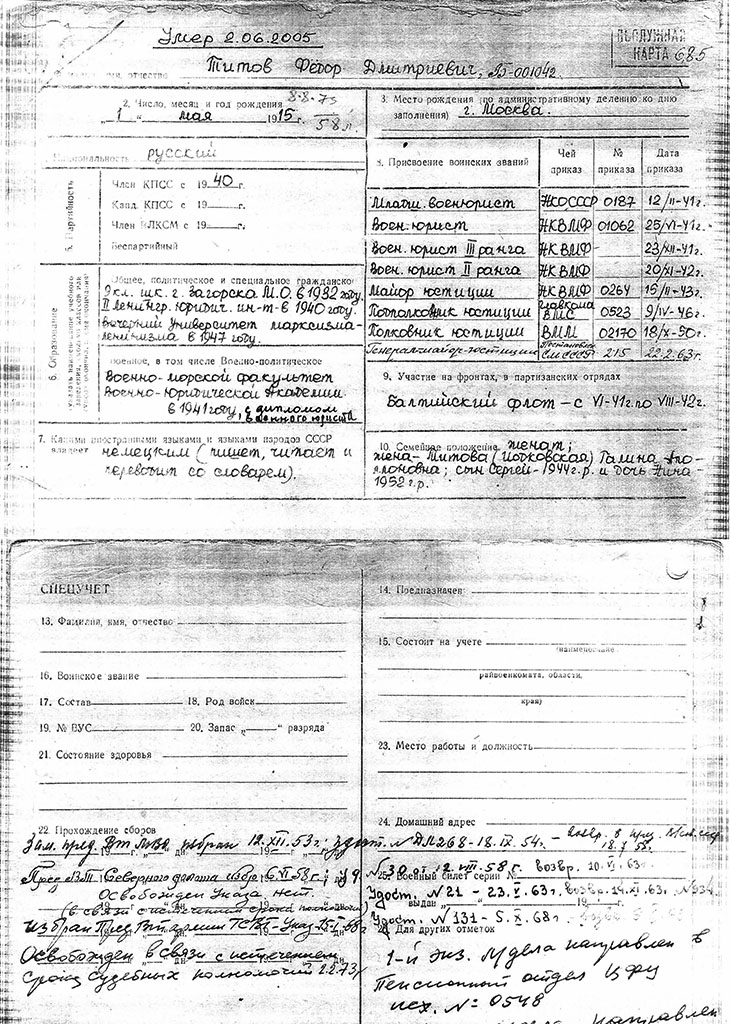 Умер 2.06.2005
ПОСЛУЖНАЯ
КАРТА 685
Титов Фёдор Дмитриевич,
отчество
2. Число, месяц и год рождения
8-8-73
58 л.
„1“ мая 1915 г.
3. Место рождения (по административному делению ко дню
заполнения) г. Москва.
Национальность русский
5. Партийность
Член КПСС с 1940 г.
Канд. КПСС с 19 г.
Член ВЛКСМ с 19 г.
Беспартийный
8. Присвоение воинских званий
Чей приказ
№ приказа
Дата приказа
Младш. военюрист НКОСССР 0187 12/II-41г.
Воен. юрист НКВМФ 01062 25/VI-41г.
Воен. юрист III ранга НКВМФ 23/XII-41г.
Воен. юрист II ранга НКВМФ 20/XI-42г.
Майор юстиции НКВМФ 0264 15/II-43г.
Подполковник юстиции Главкома ВМС 0523 9/IV-46г.
Полковник юстиции ВММ 02170 18/X-50г.
Генерал-майор юстиции Постановл. СМ СССР 215 22.2.63г.
6. Образование
Общее, политическое и специальное гражданское
9 кл. шк. г. Загорска М.О. в 1932 году.
II Ленингр. юридич. ин-т в 1940 году.
Вечерний Университет марксизма-
ленинизма в 1947 году.
Военное, в том числе Военно-политическое
Военно-морской факультет
Военно-юридической Академии
в 1941 году, с дипломом
военного юриста
9. Участие на фронтах, в партизанских отрядах
Балтийский флот – с VI-41г. по VIII-42г.
7. Какими иностранными языками и языками народов СССР
владеет немецким (пишет, читает и
переводит со словарем).
10. Семейное положение женат;
жена- Титова ( ) Галина Апо-
ллоновна; сын Сергей-1944г.р. и дочь Нина-
1952г.р.
СПЕЦУЧЕТ
13. Фамилия, имя, отчество
16. Воинское звание
17. Состав 18. Род войск
19. № ВУС 20. Запас „ “ разряда
21. Состояние здоровья
14. Предназначен
15. Состоит на учете
(наименование
райвоенкомата, области,
края)
23. Место работы и должность
24. Домашний адрес
22. Прохождение сборов
Зам. пред. избран 12.XII.53г.: удост. № ДМ268-18.IX.54г. –
Северного флота избр. 6.VI.58г.:
Освобожден Указа нет.
(в связи с истечением срока полномочий)
Избран Пред.
Освобожден в связи с истечением
срока судебных полномочий 2.2.73г
№30 12.VIII.58г. возвр. 10.VI.63г.
25. Военный билет серии №
Удост. №21 - 23.V.63г. возвр. 14.XI.63г.
выдан „ “ 19 г.
Удост. №131-5.X.68г.
26. Для других отметок
1-й экз. Мдела направлен в
Пенсионный отдел ЦФУ
исх. № 0548
направлен